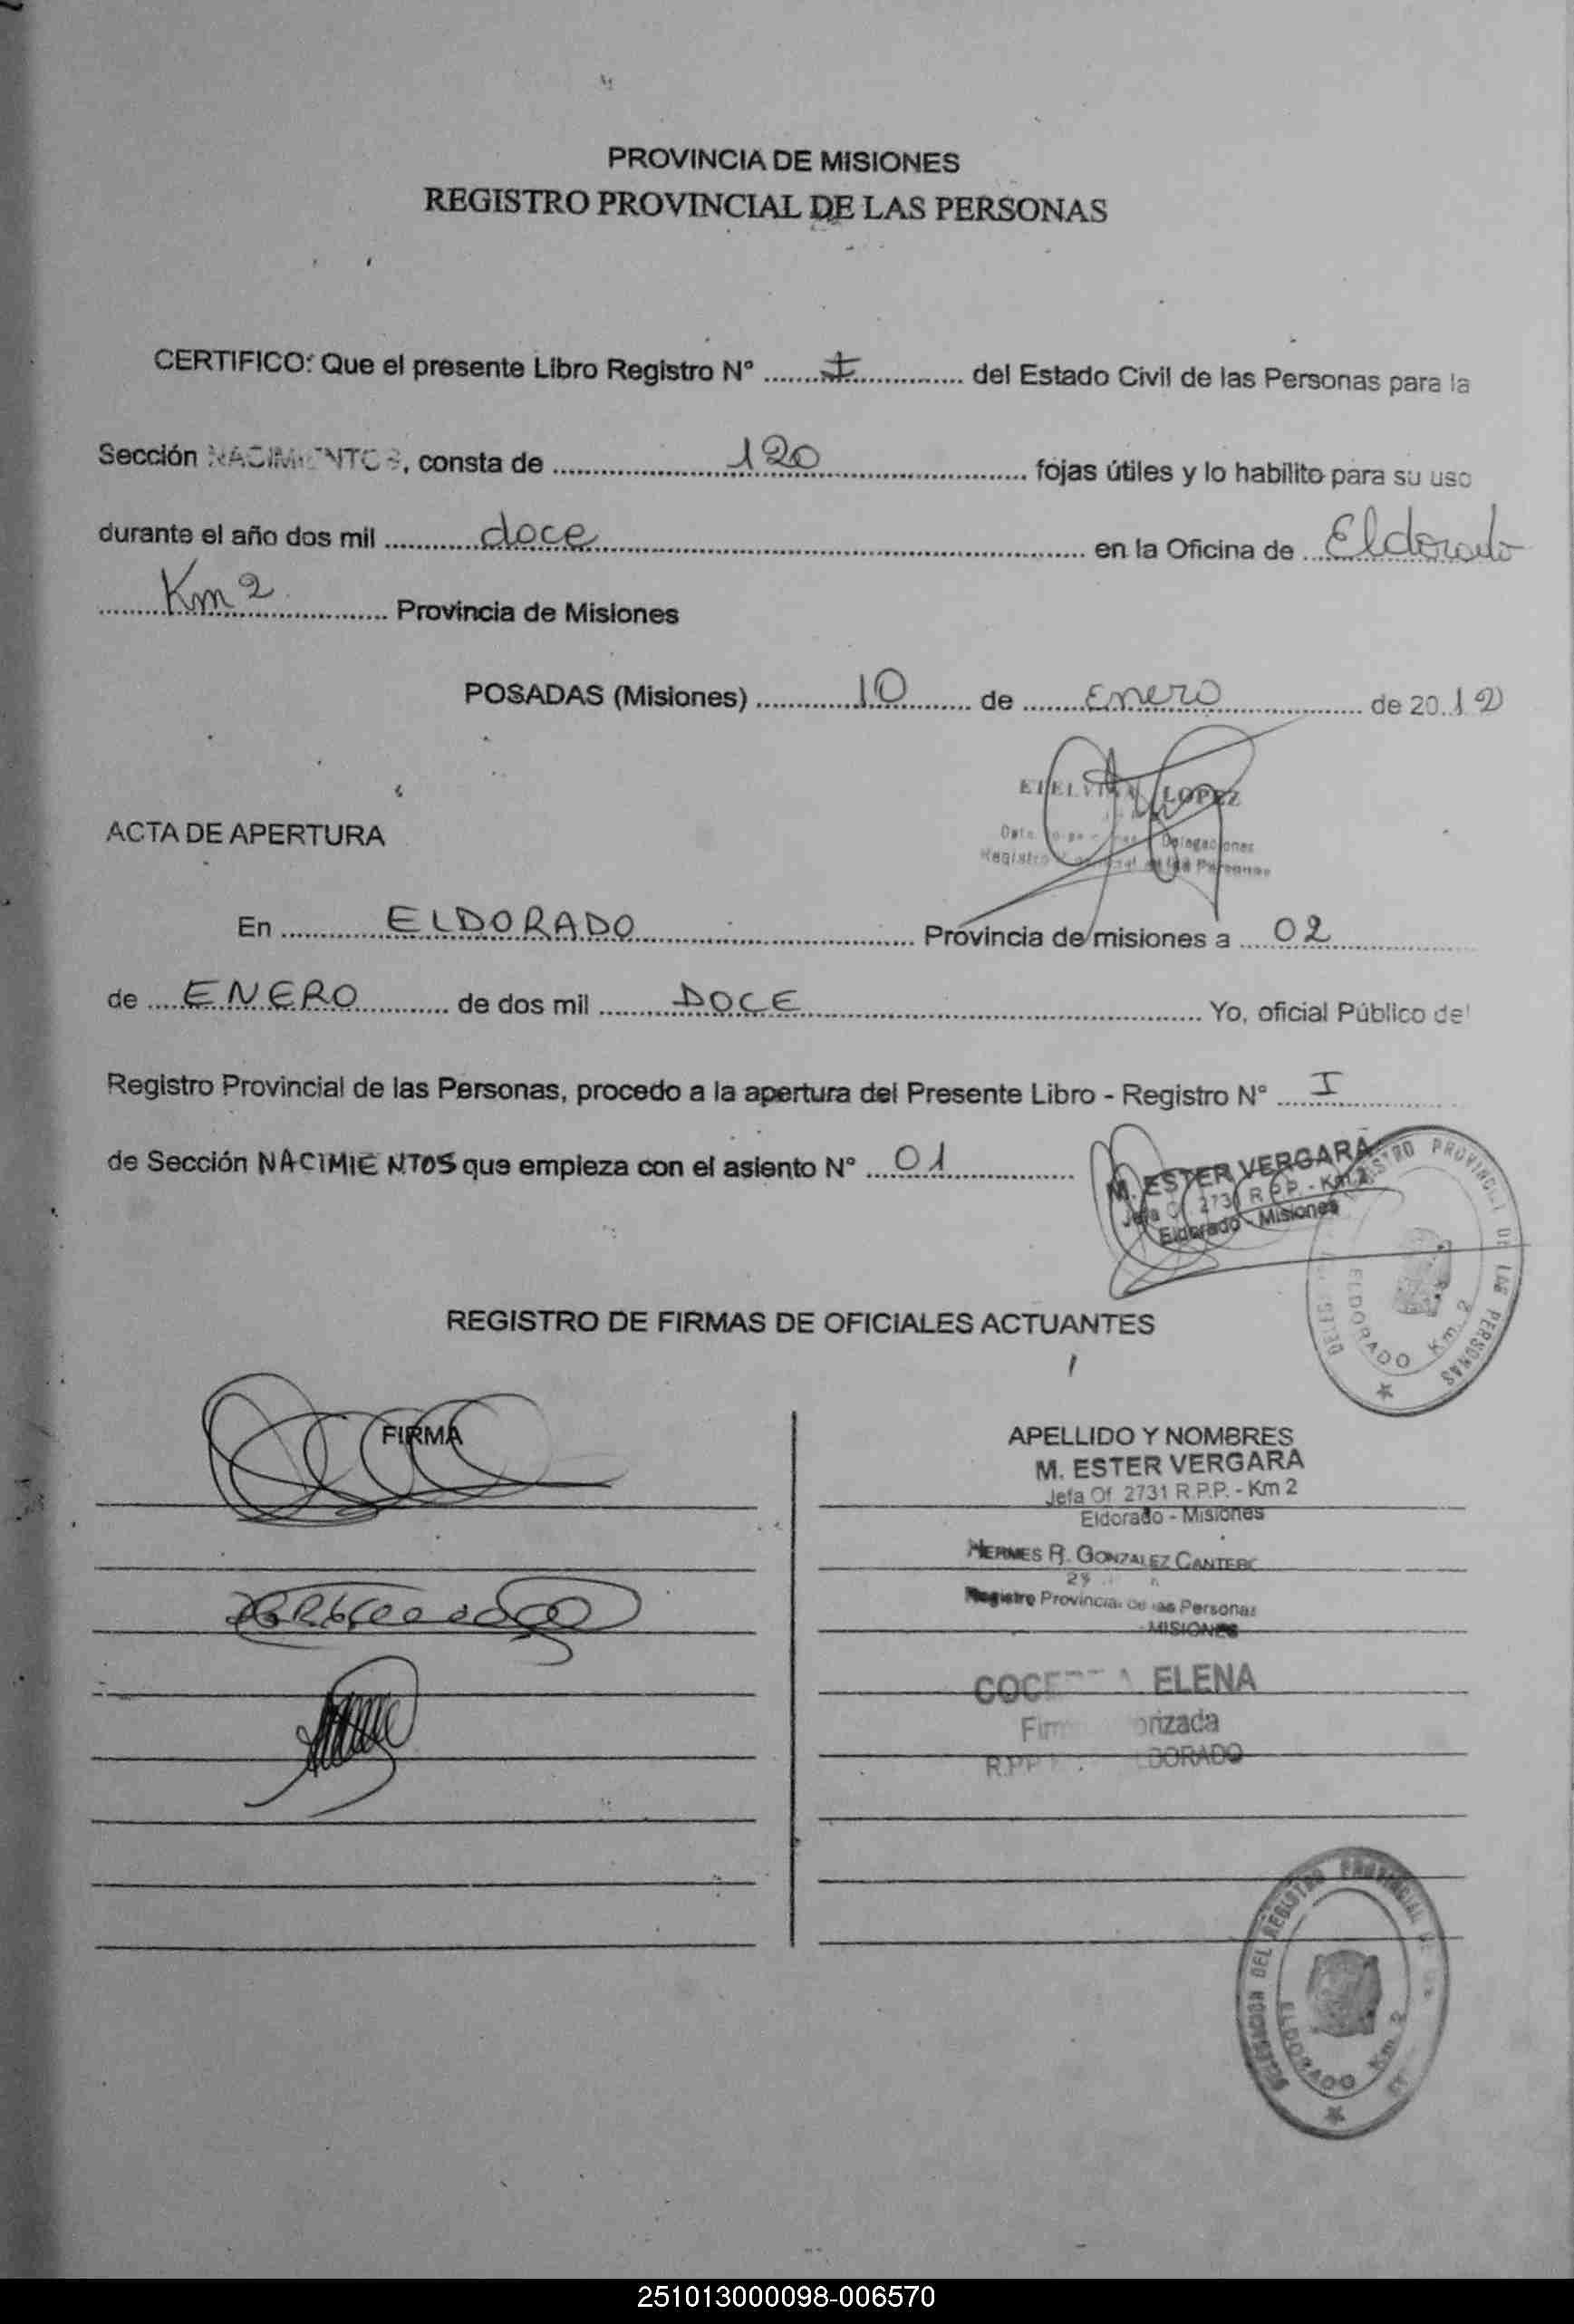 PROVINCIA DE MISIONES
REGISTRO PROVINCIAL DE LAS PERSONAS
CERTIFICO: Que el presente Libro Registro Nº ........I............. del Estado Civil de las Personas para la
Sección NACIMIENTOS, consta de ........120........ fojas útiles y lo habilito para su uso
durante el año dos mil ........doce........ en la Oficina de ...Eldorado
........Km 2........ Provincia de Misiones
POSADAS (Misiones) ........10........ de ........Enero........ de 20.12
LOPEZ
Delegaciones
Registro de las Personas
ACTA DE APERTURA
En ........ELDORADO........ Provincia de misiones a .....02........
de .....ENERO........ de dos mil ........DOCE........ Yo, oficial Público del
Registro Provincial de las Personas, procedo a la apertura del Presente Libro - Registro Nº .....I........
de Sección NACIMIENTOS que empieza con el asiento Nº ....01........
M. ESTER VERGARA
Jefa Of. 2731 R.P.P. - Km 2
Eldorado - Misiones
REGISTRO PROVINCIAL DE LAS PERSONAS
ELDORADO Km. 2
REGISTRO DE FIRMAS DE OFICIALES ACTUANTES
FIRMA
APELLIDO Y NOMBRES
M. ESTER VERGARA
Jefa Of. 2731 R.P.P. - Km 2
Eldorado - Misiones
HERMES R. GONZALEZ CANTERO
Registro Provincial de las Personas
MISIONES
ELENA
R.P.P. ELDORADO
DELEGACION DEL REGISTRO PROVINCIAL DE
ELDORADO Km. 2
251013000098-006570